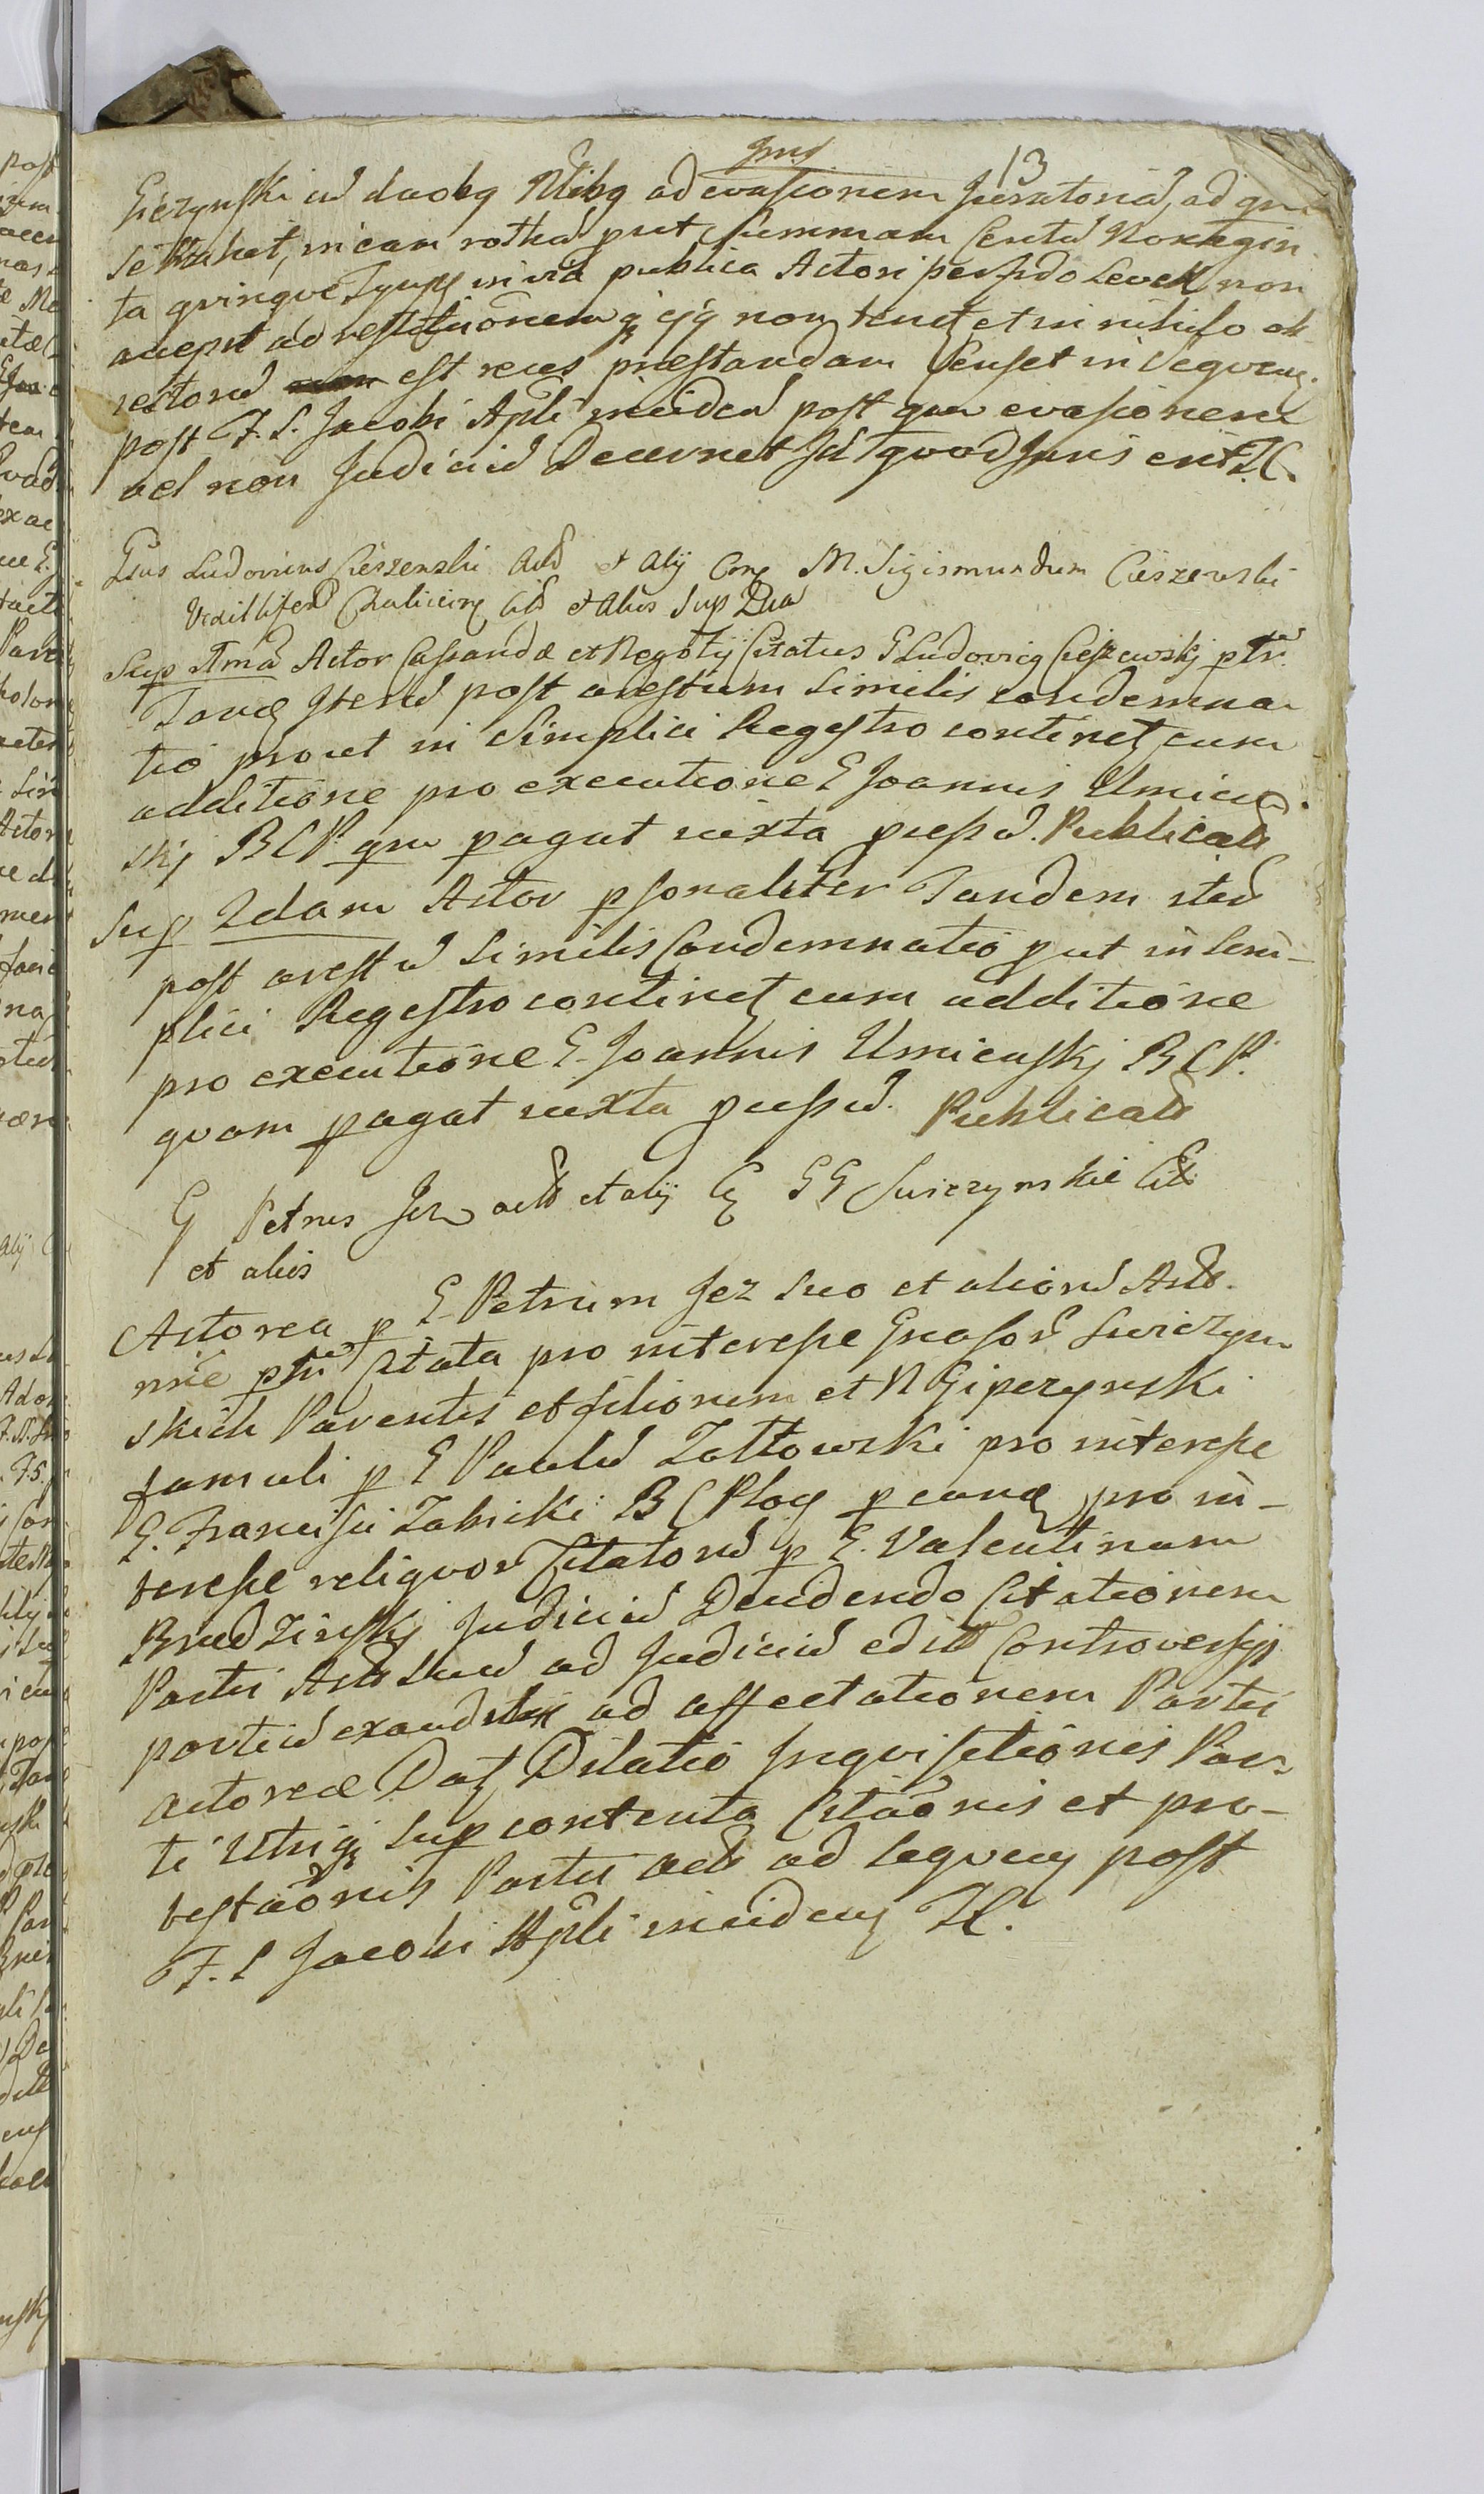 13
Giezynski cū duobq Ntibq ad evasionem Juratoriā, ad qm
se trahet, in eam rothā put Summam Centū Nonagin
ta qvinqve Tynff in via publica Actori perfido Levek non
accepit ad restitutionem q ejq non tenet et in nihilo ob
est reus præstandam Censet in Seqven.
post F. S. Jacobi Apli incideñ post qm evasionem
vel non Judiciū Decernet Id qvod Juris erit H.
Gsus Ludovicus Cieszenski Actt et Alij Cont M. Sigismundum Cieszewski
Vexilliferū Citt et Alios Sup Dua
Sup Imā Actor Cassandæ et Negotij Citatus G Ludovicq Cieszewskj ptr
Tandē Iterū post arestum Similis condemna
tio prout in Simplici Regestro continet cum
additione pro executione G Joannis Umien
skj BCP qm pagat iuxta pressū. Publicatt
Sup 2dam Actor psonaliter Tandem iterū
post arestū Similis Condemnatio put in Sim-
plici Regestro continet cum additione
pro executione G. Joannis Umienskj BCP.
qvam pagat iuxta pressū. Publicatt
G Petrus Jez actt et alij C GG Swiezynskie Citt
et alios
Actorea p G Petrum Jez Suo et aliorū Actt.
nne ptr Citata pro interesse Gnasorū Swiezyn
skich Parentis et filiorum et N Gipczynski
famuli p G Paulū Zołtowski pro interesse
G. Francisci Zabicki B C Ploc p eund pro in-
teresse reliqvor Citatorū p G. Valentinum
Brudzinskj Judiciū Decidendo Citationem
Partis Actt suū ad Judiciū editt Controversijs
partiū exauditis ad affectationem Partis
actoreæ Dat Dilatio Inqvisitionis Par
ti Utriqz sup contenta Citaõnis et pro-
testaõnis Partis actt ad seqven post
F. S Jacobi Apli inciden H.